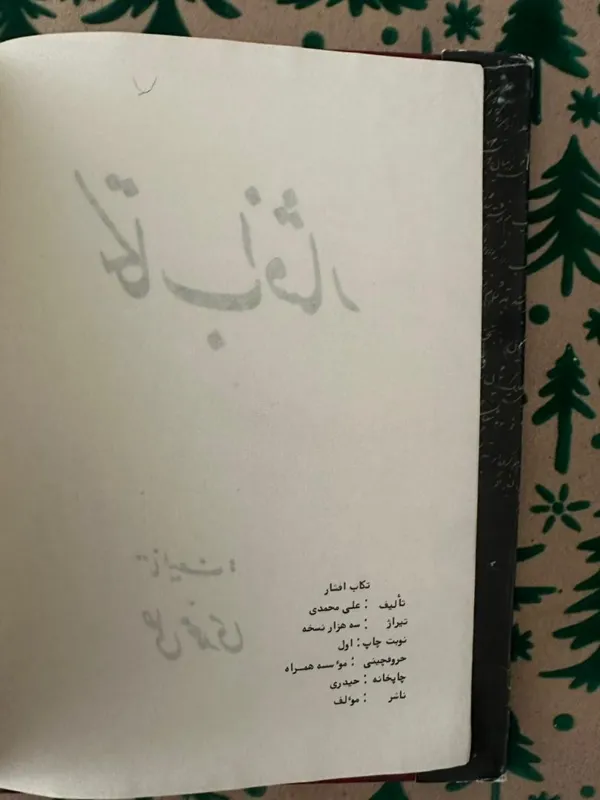 تکاب افشار
تألیف : علی محمدی
تیراژ : سه هزار نسخه
نوبت چاپ : اول
حروفچینی : مؤسسه همراه
چاپخانه : حیدری
ناشر : مؤلف